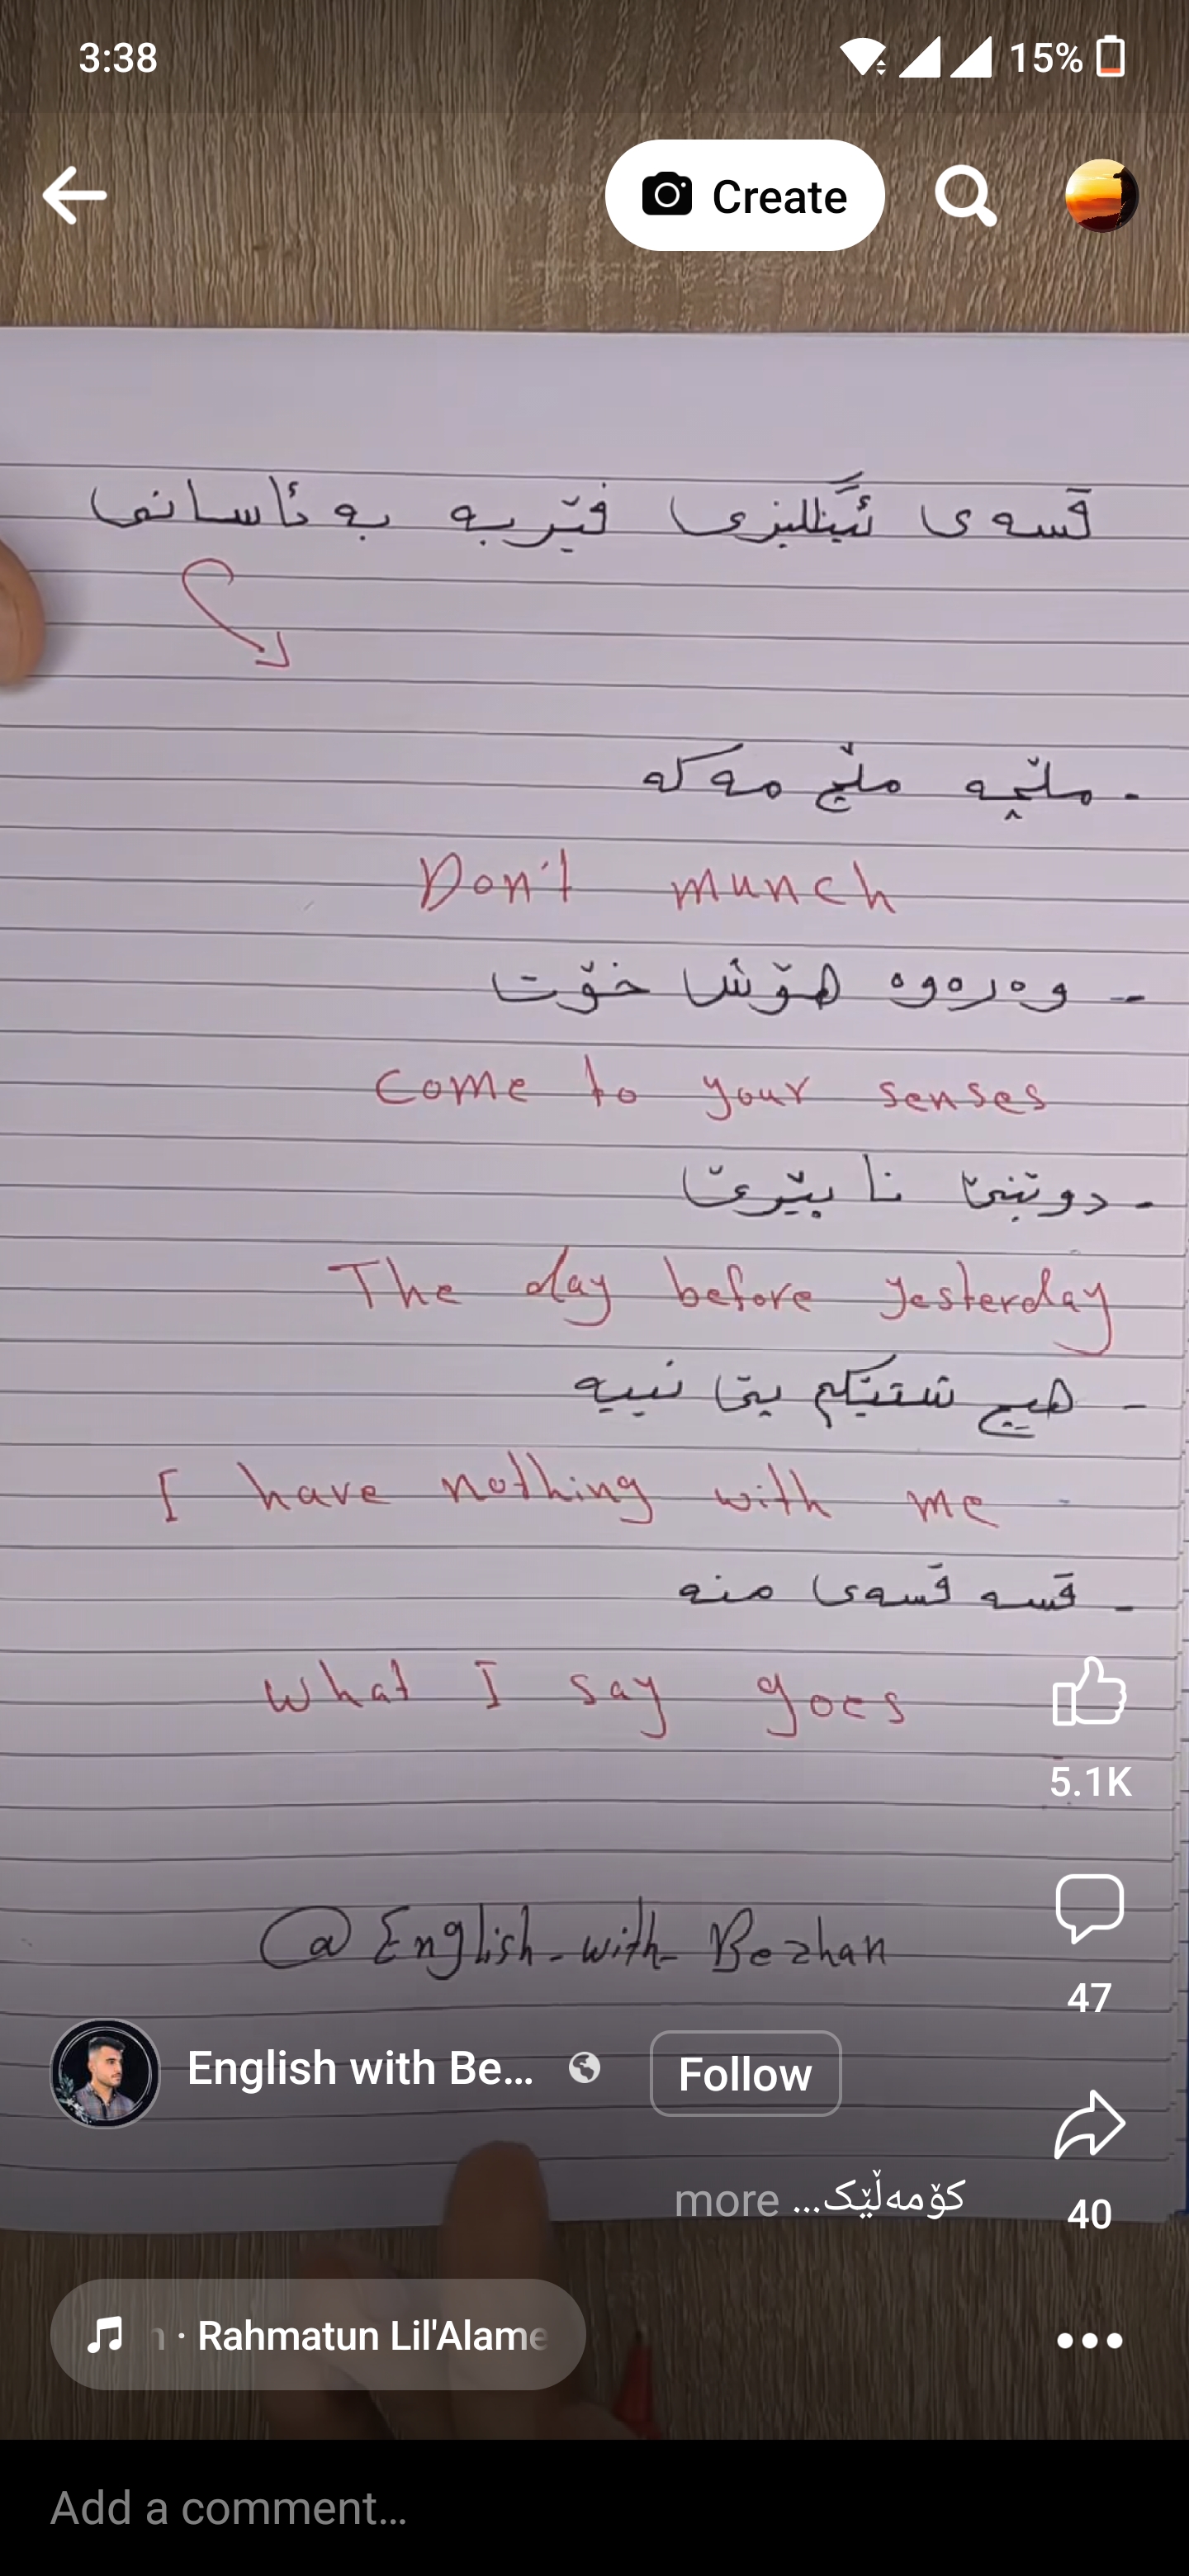 3:38
15%
Create
قسەی ئینگلیزی فێربە بە ئاسانی
- ملێچە ملێچ مەکە
Don't munch
- وەرەوە هۆش خۆت
Come to your senses
- دوێنێ نا پێرێ
The day before yesterday
- هیچ شتێکم پێ نییە
I have nothing with me
- قسە قسەی منە
What I say goes
5.1K
@English-with-Bezhan
47
English with Be...
Follow
کۆمەڵێک... more
40
· Rahmatun Lil'Alame
Add a comment...